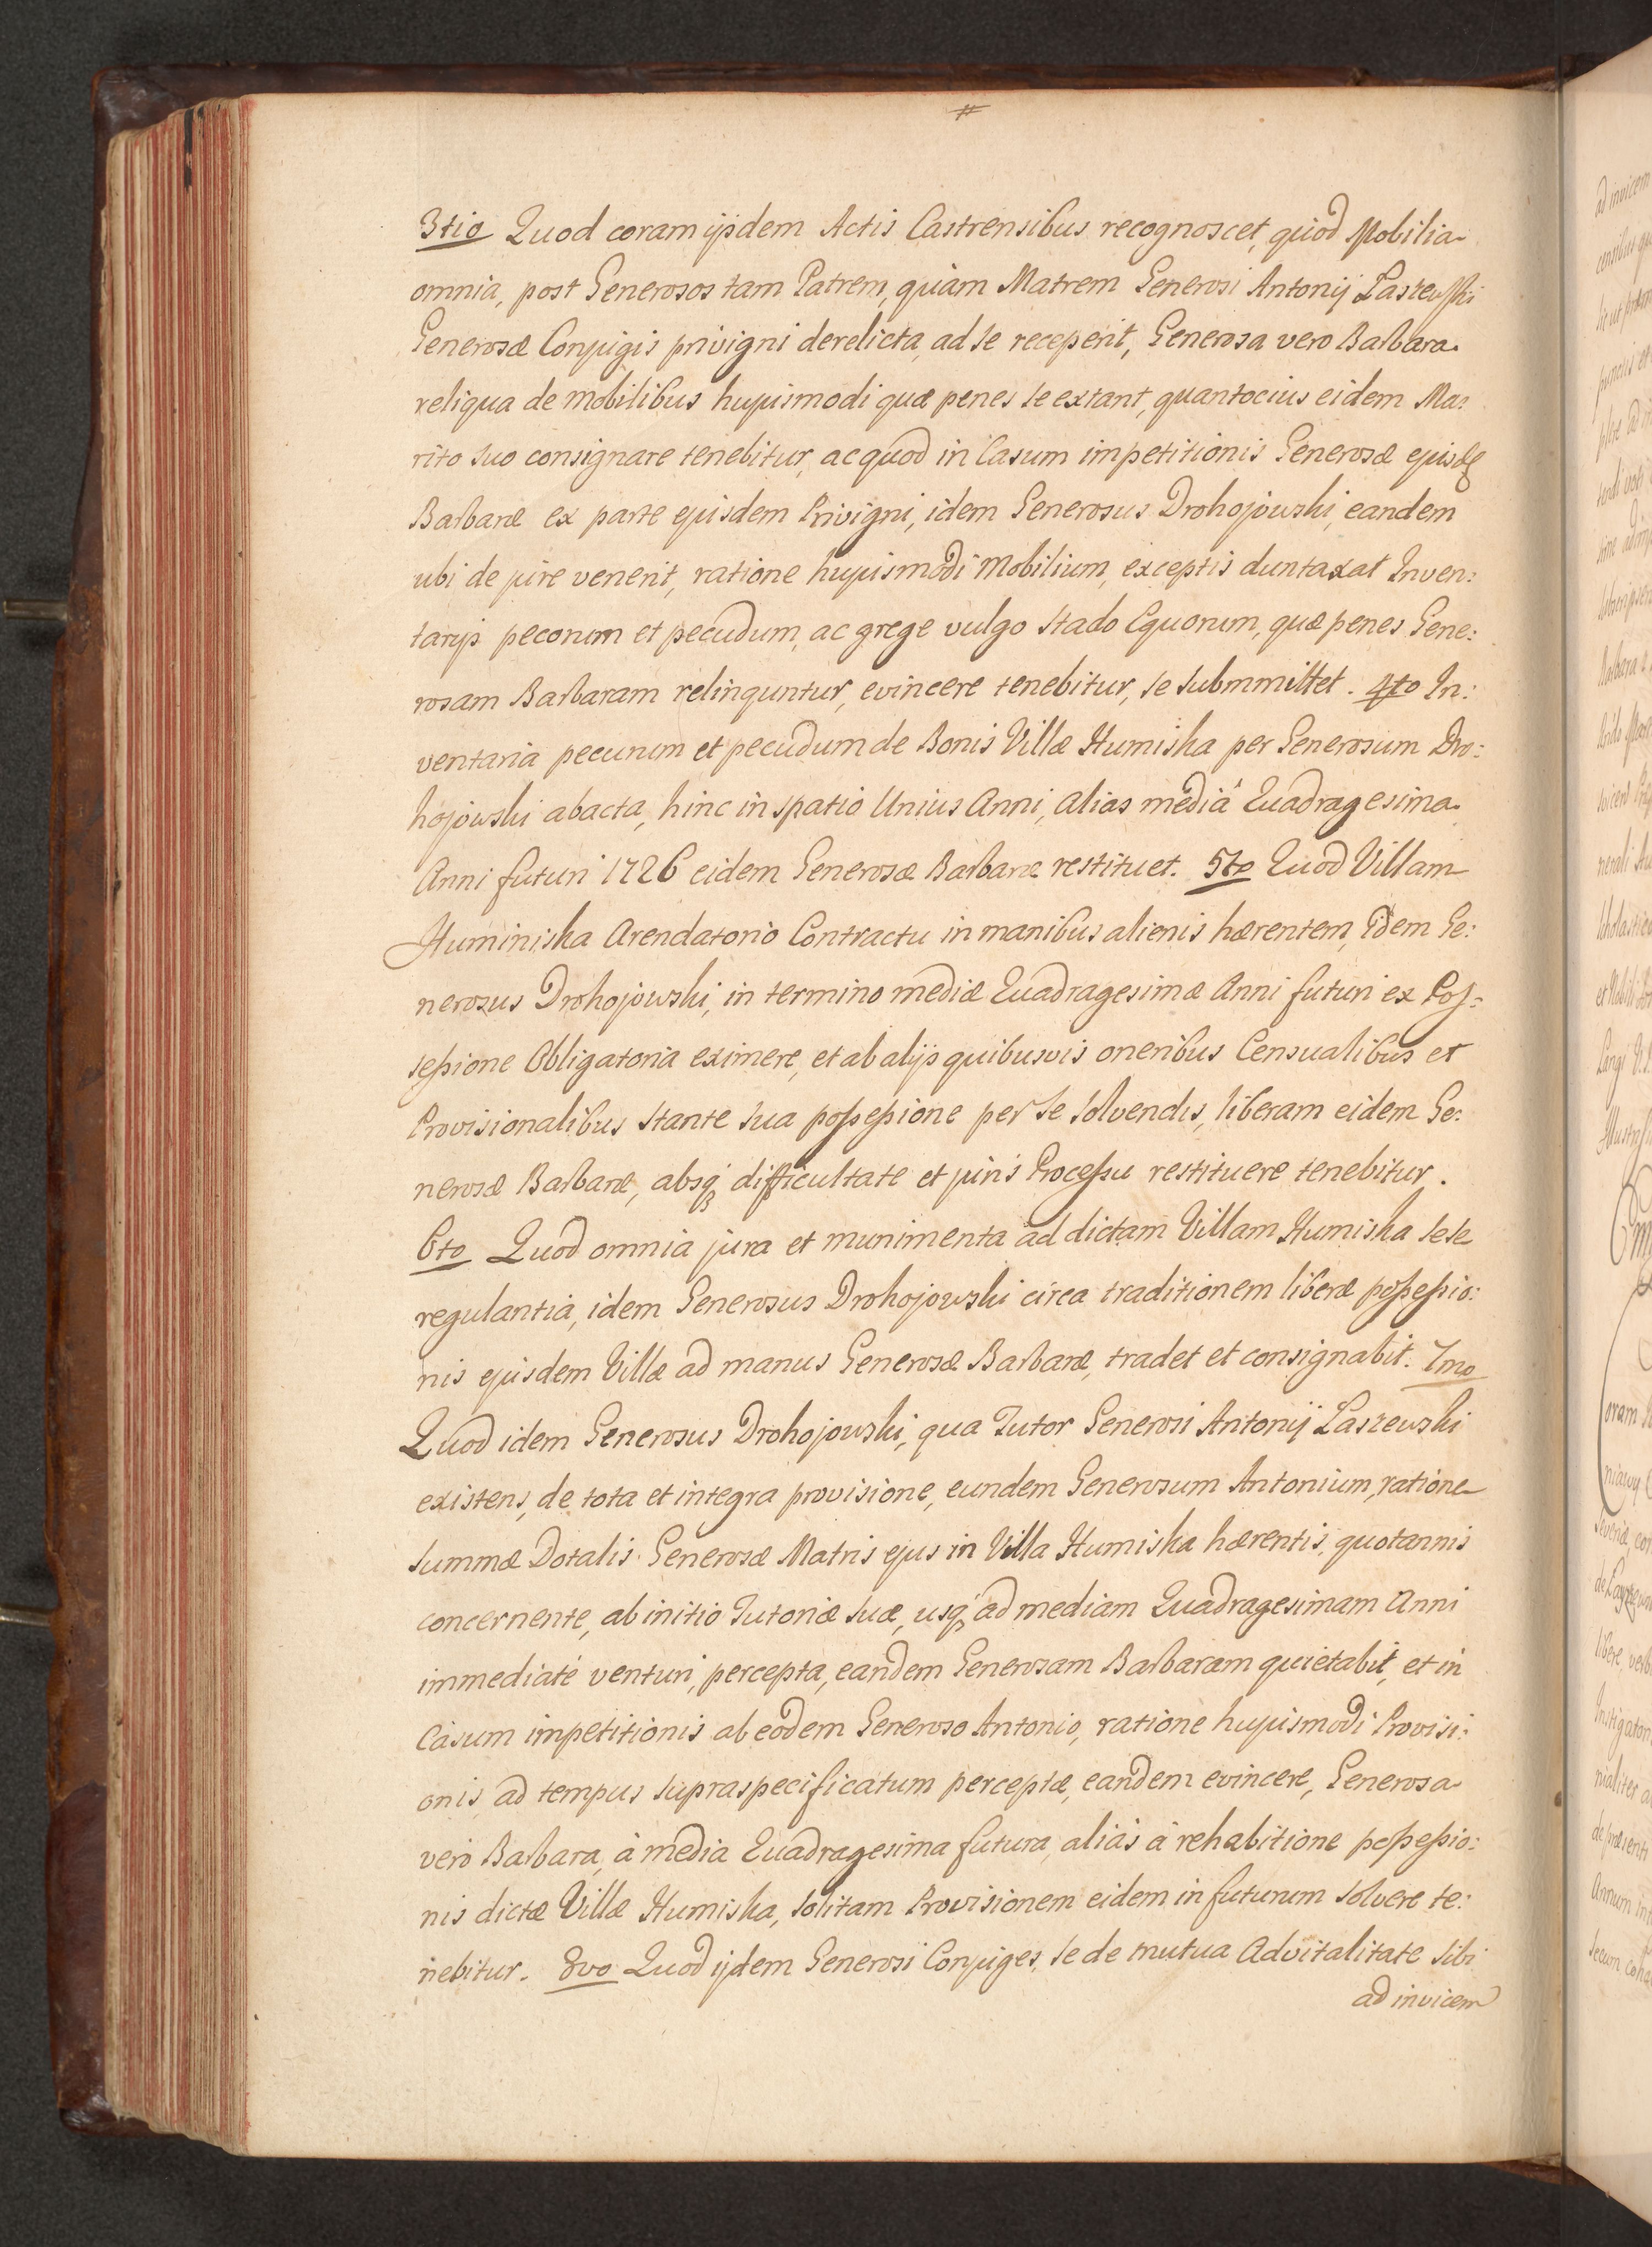 #
3tio Quod coram ijsdem Actis Castrensibus recognoscet, quod Mobilia
omnia, post Generosos tam Patrem, quàm Matrem Generosi Antonij Laszewski
Generosæ Conjugis privigni derelicta, ad se receperit, Generosa vero Barbara
reliqua de mobilibus hujusmodi quæ penes se extant, quantocius eidem Ma:
rito suo consignare tenebitur, ac quod in Casum impetitionis Generosæ ejusd
Barbaræ ex parte ejusdem Privigni, idem Generosus Drohojowski, eandem
ubi de jure venerit, ratione hujusmodi Mobilium, exceptis duntaxat Inven:
tarijs pecorum et pecudum, ac grege vulgo stado Equorum, quæ penes Gene:
rosam Barbaram relinquntur, evincere tenebitur, se submmittet. 4to In:
ventaria pecurum et pecudum de Bonis Villæ Humiska per Generosum Dro:
hojowski abacta, hinc in spatio Unius Anni, alias mediâ Quadragesima
Anni futuri 1726 eidem Generosæ Barbaræ restituet. 5to Quod Villam
Huminiska Arendatorio Contractu in manibus alienis hærentem, idem Ge:
nerosus Drohojowski, in termino mediæ Quadragesimæ Anni futuri ex Pos:
sessione Obligatoria eximere, et ab alijs quibusvis oneribus Censualibus et
Provisionalibus stante sua possessione per se solvendis, liberam eidem Ge:
nerosæ Barbaræ, absq; difficultate et juris Processu restituere tenebitur.
6to Quod omnia jura et munimenta ad dictam Villam Humiska sese
regulantia, idem Generosus Drohojowski circa traditionem liberæ possessio:
nis ejusdem Villæ ad manus Generosæ Barbaræ, tradet et consignabit. 7mo
Quod idem Generosus Drohojowski, qua Tutor Generosi Antonij Laszewski
existens, de tota et integra provisione, eundem Generosum Antonium, ratione
summæ Dotalis Generosæ Matris ejus in Villa Humiska hærentis, quotannis
concernente, ab initio Tutoriæ suæ, usq; ad mediam Quadragesimam Anni
immediaté venturi, percepta, eandem Generosam Barbaram quietabit, et in
Casum impetitionis ab eodem Generoso Antonio, ratione hujusmodi Provisi:
onis, ad tempus supraspecificatum perceptæ, eandem evincere, Generosa
vero Barbara, à media Quadragesima futura, aliàs à rehabitione possessio:
nis dictæ Villæ Humiska, solitam Provisionem eidem in futurum solvere te:
nebitur. 8vo Quod ijdem Generosi Conjuges, se de mutua Advitalitate sibi
ad invicem